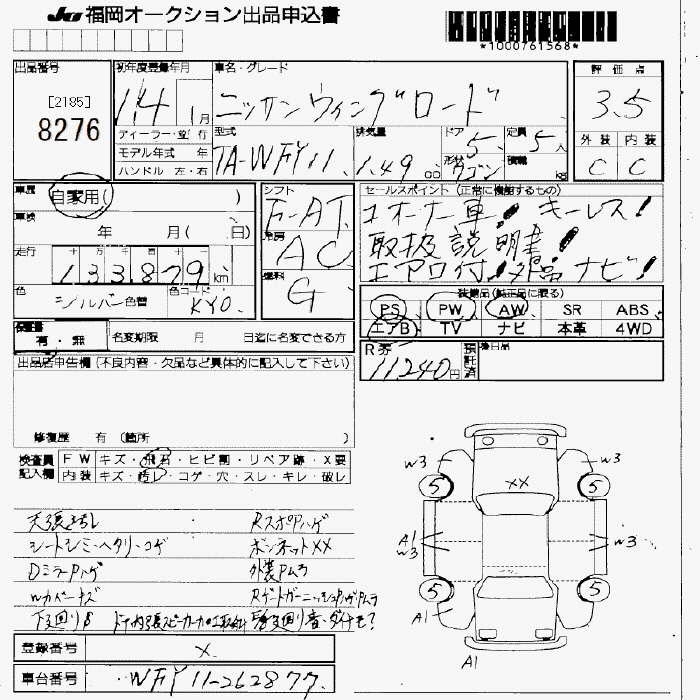 JU 福岡オークション出品申込書
*1000761568*
出品番号
[2185]
8276
初年度登録年月
14 1月
車名・グレード
ニッサン ウィングロード
評価点
3.5
ディーラー・並 行
モデル年式 年
ハンドル 左・右
型式
TA-WFY11
排気量
1.49 CC
ドア
5
形状
ワゴン
定員
5人
積載
kg
外装 内装
C C
車歴
自家用( )
車検
年 月( 日)
走行
133,879 km
色
シルバー 色替
色コード
KY0
シフト
F-AT
冷房
AC
燃料
G
セールスポイント (正常に機能するもの)
1オーナー車! キーレス!
取扱説明書!
エアロ付! 純正ナビ!
装備品(純正品に限る)
PS PW AW SR ABS
エアB TV ナビ 本革 4WD
有・無
名変期限 月 日迄に名変できる方
R券
11240円
預託済
後日品
出品店申告欄 (不良内容・欠品など具体的に記入して下さい)
修復歴 有 (箇所 )
検査員記入欄
FW キズ・飛石・ヒビ割・リペア跡・X要
内装 キズ・汚レ・コゲ・穴・スレ・キレ・破レ
天張汚レ
Rスポアハゲ
シートシミ・ヘタリ・コゲ
ボンネットXX
DミラーPハゲ
外装Pムラ
Wカバーキズ
下回りS
登録番号
X
車台番号
WFY11-262877
W3 W3
5 5
XX
A1
W3 W3
5 5
A1
A1